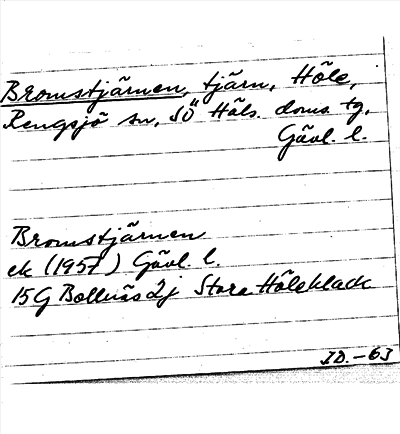 Bromstjärnen, tjärn, Höle,
Rengsjö sn, SÖ Häls. doms. tg,
Gävl. l.
Bromstjärnen
ek (1957) Gävl l.
15G Bollnäs 2j Stora Höleklack
I.D. -63